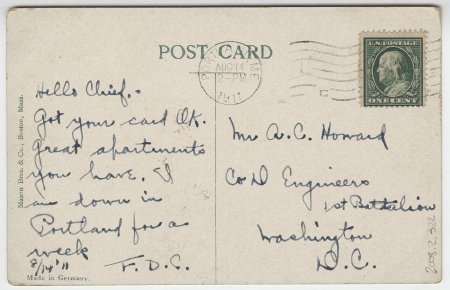 POST CARD
PORTLAND, ME
AUG 14
2-PM
1911
U.S. POSTAGE
ONE CENT
Hello Chief.-
Got your card OK.
Great apartments
you have. I
am down in
Portland for a
week
8/14'11
F.D.C.
Mr A.C. Howard
Co D Engineers
1st Battalion
Washington
D.C.
Mason Bros. & Co., Boston, Mass.
Made in Germany.
208.2.322